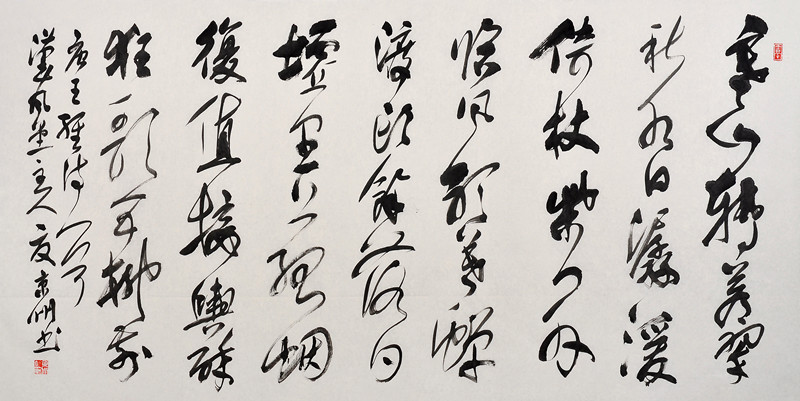 寒山轉蒼翠
秋水日潺湲
倚杖柴門外
臨風聽暮蟬
渡頭餘落日
墟里上孤烟
復值接輿醉
狂歌五柳前
唐王維詩一首
漢風堂主人夏書